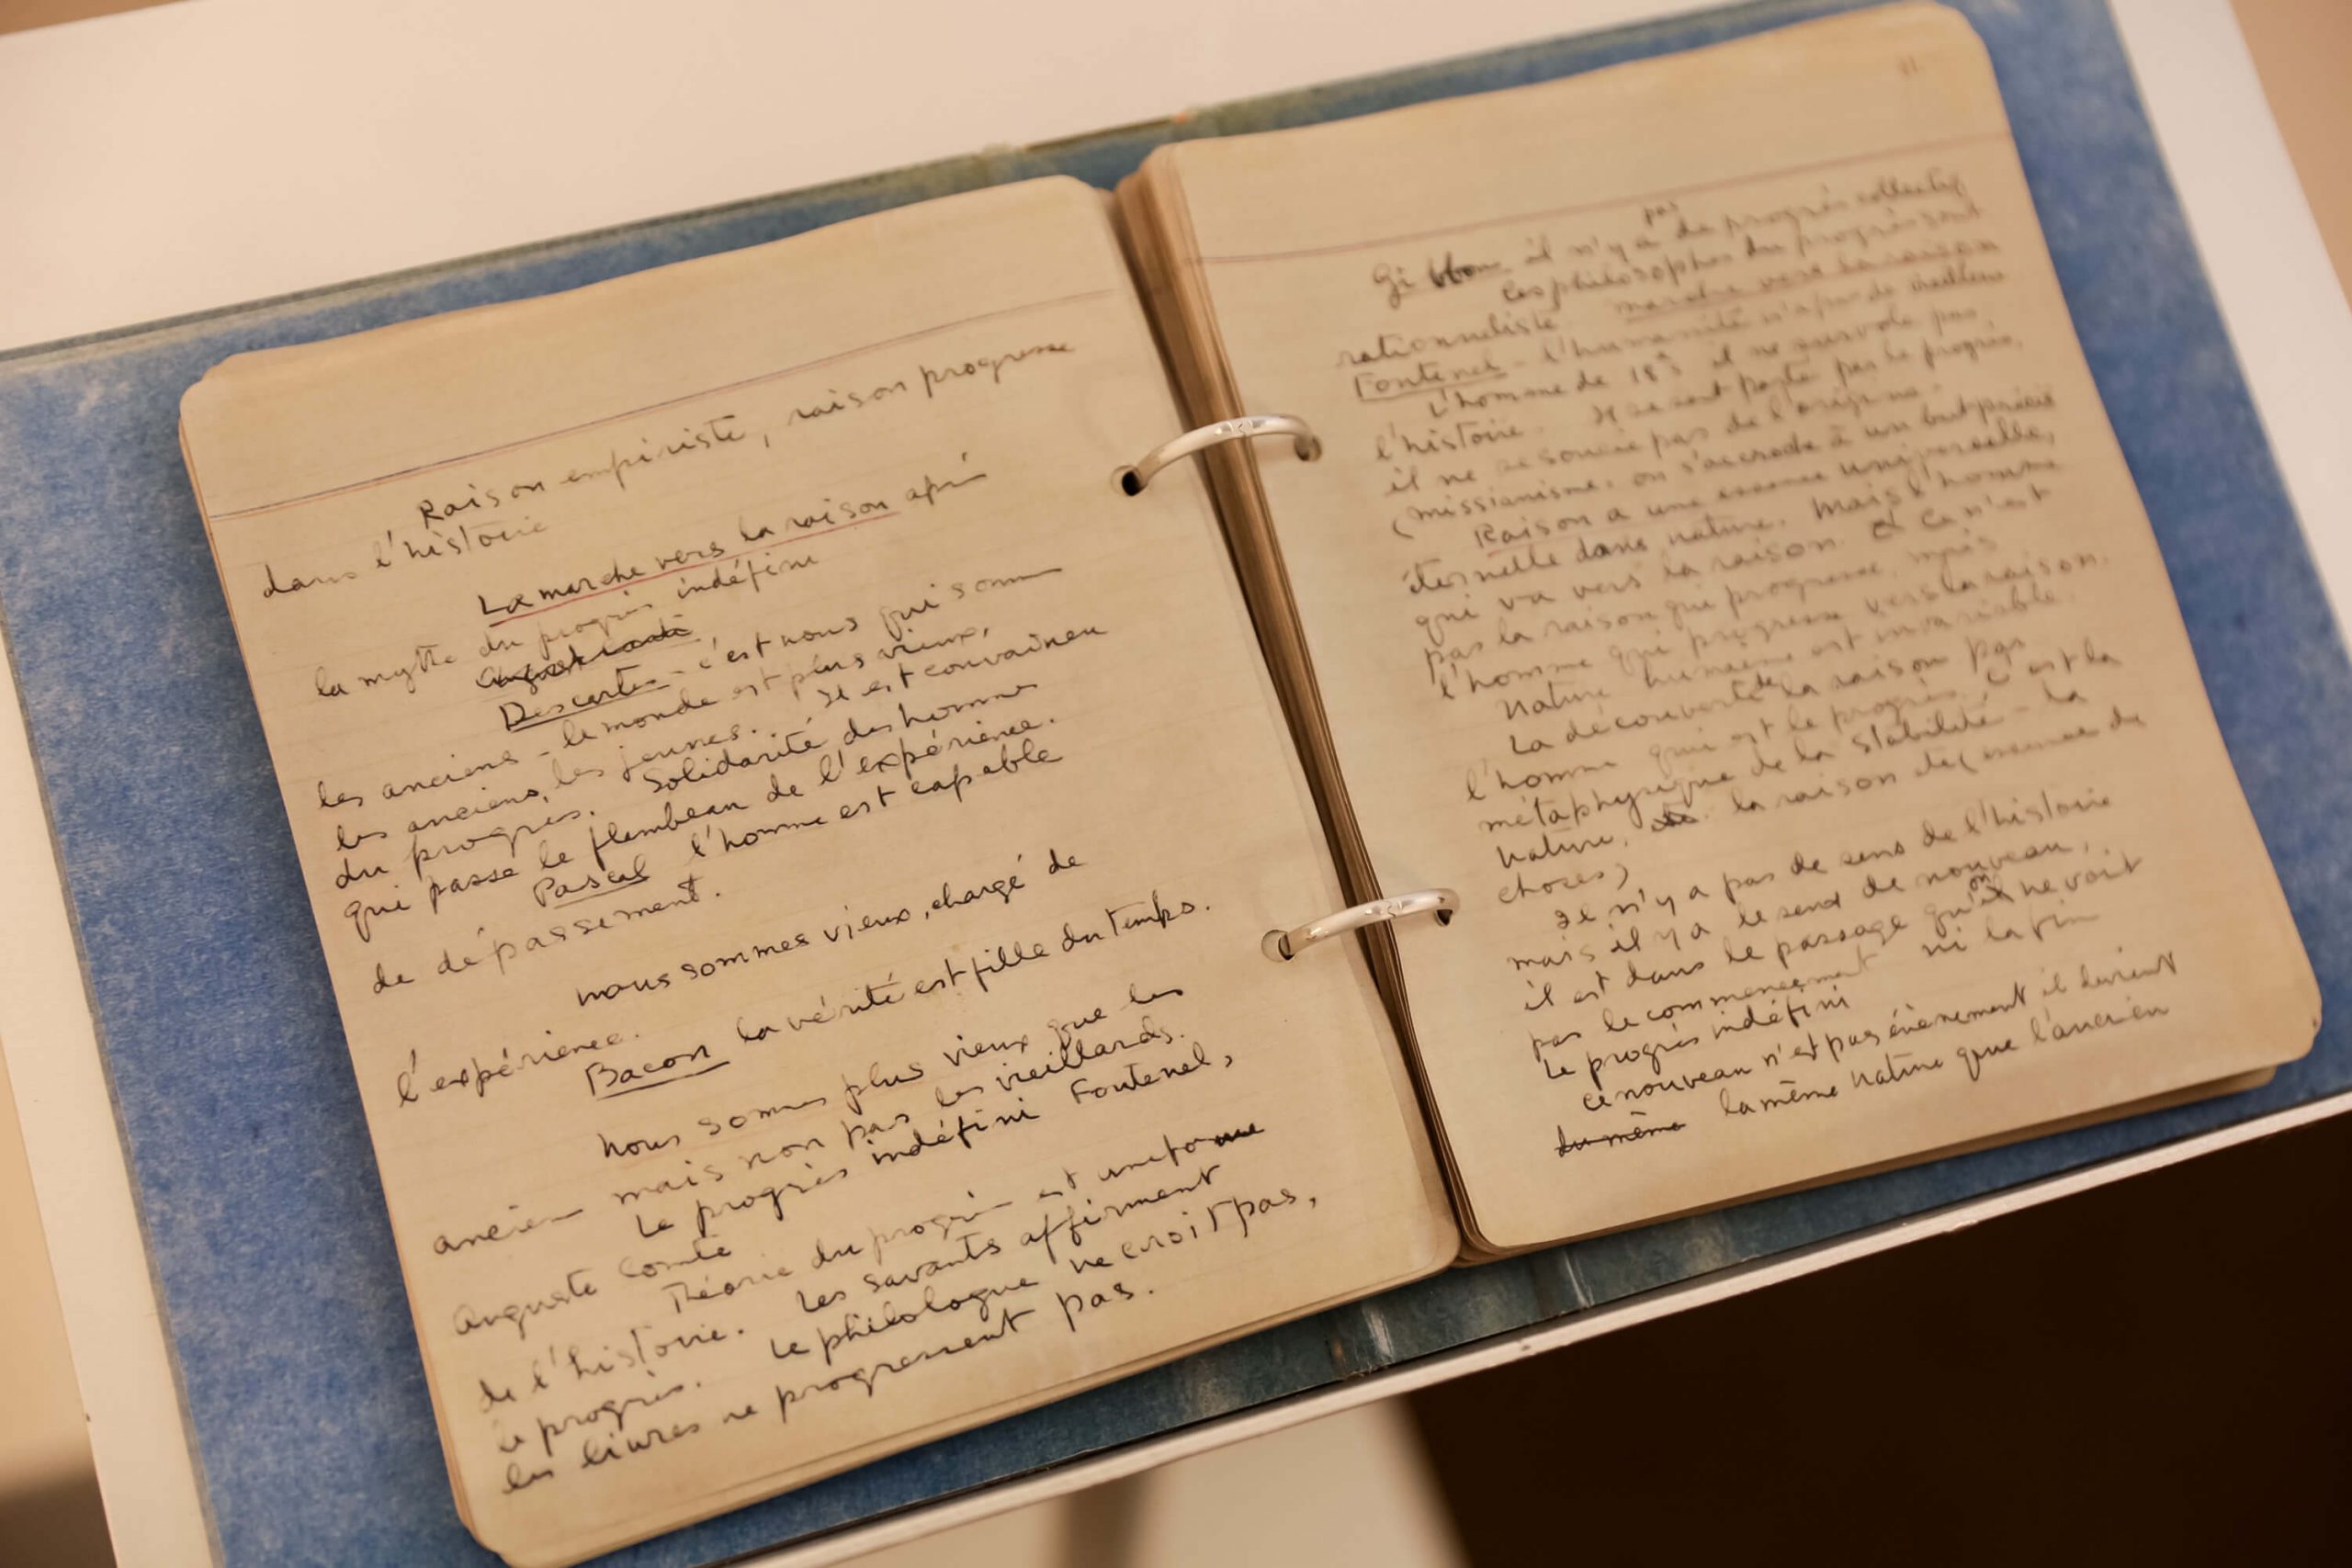 Raison empiriste, raison progresse
dans l'histoire
La marche vers la raison après
le mythe du progrès indéfini
Descartes - c'est nous qui sommes
les anciens - le monde est plus vieux,
les anciens, les jeunes. Il est convaincu
du progrès. Solidarité des hommes
qui passe le flambeau de l'expérience.
Pascal l'homme est capable
de dépassement.
nous sommes vieux, chargé de
l'expérience.
Bacon la vérité est fille du temps.
nous sommes plus vieux que les
anciens mais non pas les vieillards.
Le progrès indéfini Fontenel,
Auguste Comte
Théorie du progrès est une forme
de l'histoire. Les savants affirment
le progrès. Le philologue ne croit pas,
les livres ne progressent pas.
11
Gibbon il n'y a pas de progrès collectif
Les philosophes du progrès sont
rationnaliste marche vers la raison
Fontenel - l'humanité n'a pas de
L'homme de 18e s il ne survole pas
l'histoire. Il se sent porté par le progrès,
il ne se soucie pas de l'origine -
(missianisme, on s'accroche à un but précis
Raison a une essence universelle,
éternelle dans nature. Mais l'homme
qui va vers la raison. Et ce n'est
pas la raison qui progresse, mais
l'homme qui progresse vers la raison.
Nature humaine est invariable.
La découverte de la raison par
l'homme qui est le progrès. C'est la
métaphysique de la stabilité - la
nature, la raison etc (essence de
choses)
Il n'y a pas de sens de l'histoire
mais il y a le sens de nouveau,
il est dans le passage qu'on ne voit
pas le commencement ni la fin
Le progrès indéfini
ce nouveau n'est pas évènement il devient
du même la même nature que l'ancien